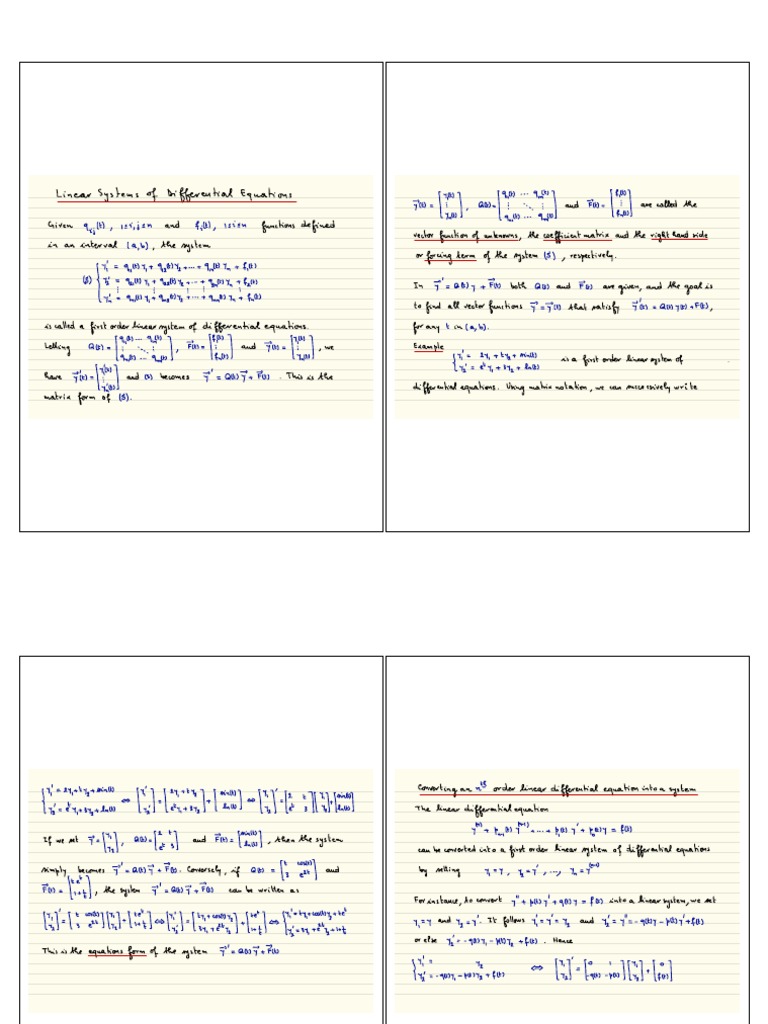 Linear Systems of Differential Equations
Given q_ij(t), 1≤i,j≤n and f_i(t), 1≤i≤n functions defined
in an interval (a,b), the system
(S) { y₁' = q₁₁(t)y₁ + q₁₂(t)y₂ + ... + q₁ₙ(t)yₙ + f₁(t)
y₂' = q₂₁(t)y₁ + q₂₂(t)y₂ + ... + q₂ₙ(t)yₙ + f₂(t)
⋮
yₙ' = qₙ₁(t)y₁ + qₙ₂(t)y₂ + ... + qₙₙ(t)yₙ + fₙ(t)
is called a first order linear system of differential equations.
Letting Q(t) = [q₁₁(t) ... q₁ₙ(t); ⋮ ⋱ ⋮; qₙ₁(t) ... qₙₙ(t)], F⃗(t) = [f₁(t); ⋮; fₙ(t)] and y⃗(t) = [y₁(t); ⋮; yₙ(t)], we
have y⃗'(t) = [y₁'(t); ⋮; yₙ'(t)] and (S) becomes y⃗' = Q(t)y⃗ + F⃗(t). This is the
matrix form of (S).
y⃗(t) = [y₁(t); ⋮; yₙ(t)], Q(t) = [q₁₁(t) ... q₁ₙ(t); ⋮ ⋱ ⋮; qₙ₁(t) ... qₙₙ(t)] and F⃗(t) = [f₁(t); ⋮; fₙ(t)] are called the
vector function of unknowns, the coefficient matrix and the right hand side
or forcing term of the system (S), respectively.
In y⃗' = Q(t)y + F⃗(t) both Q(t) and F⃗(t) are given, and the goal is
to find all vector functions y⃗ = y⃗(t) that satisfy y⃗'(t) = Q(t)y(t) + F(t),
for any t in (a,b).
Example
{ y₁' = 2y₁ + ty₂ + sin(t)
y₂' = eᵗy₁ + 3y₂ + ln(t) is a first order linear system of
differential equations. Using matrix notation, we can successively write
{ y₁' = 2y₁ + ty₂ + sin(t); y₂' = eᵗy₁ + 3y₂ + ln(t) ⇔ [y₁'; y₂'] = [2y₁ + ty₂; eᵗy₁ + 3y₂] + [sin(t); ln(t)] ⇔ [y₁; y₂]' = [2 t; eᵗ 3][y₁; y₂] + [sin(t); ln(t)]
If we set y⃗ = [y₁; y₂], Q(t) = [2 t; eᵗ 3] and F⃗(t) = [sin(t); ln(t)], then the system
simply becomes y⃗' = Q(t)y⃗ + F⃗(t). Conversely, if Q(t) = [t cos(t); 3 e²ᵗ] and
F⃗(t) = [teᵗ; 1+t], the system y⃗' = Q(t)y⃗ + F⃗(t) can be written as
[y₁; y₂]' = [t cos(t); 3 e²ᵗ][y₁; y₂] + [teᵗ; 1+t] ⇔ [y₁'; y₂'] = [ty₁ + cos(t)y₂; 3y₁ + e²ᵗy₂] + [teᵗ; 1+t] ⇔ { y₁' = ty₁ + cos(t)y₂ + teᵗ; y₂' = 3y₁ + e²ᵗy₂ + 1+t
This is the equations form of the system y⃗' = Q(t)y⃗ + F⃗(t)
Converting an nth order linear differential equation into a system
The linear differential equation
y⁽ⁿ⁾ + pₙ₋₁(t)y⁽ⁿ⁻¹⁾ + ... + p₁(t)y' + p₀(t)y = f(t)
can be converted into a first order linear system of differential equations
by setting y₁ = y, y₂ = y', ..., yₙ = y⁽ⁿ⁻¹⁾
For instance, to convert y'' + p(t)y' + q(t)y = f(t) into a linear system, we set
y₁ = y and y₂ = y'. It follows y₁' = y' = y₂ and y₂' = y'' = -q(t)y - p(t)y' + f(t)
or else y₂' = -q(t)y₁ - p(t)y₂ + f(t). Hence
{ y₁' = y₂; y₂' = -q(t)y₁ - p(t)y₂ + f(t) ⇔ [y₁; y₂]' = [0 1; -q(t) -p(t)][y₁; y₂] + [0; f(t)]